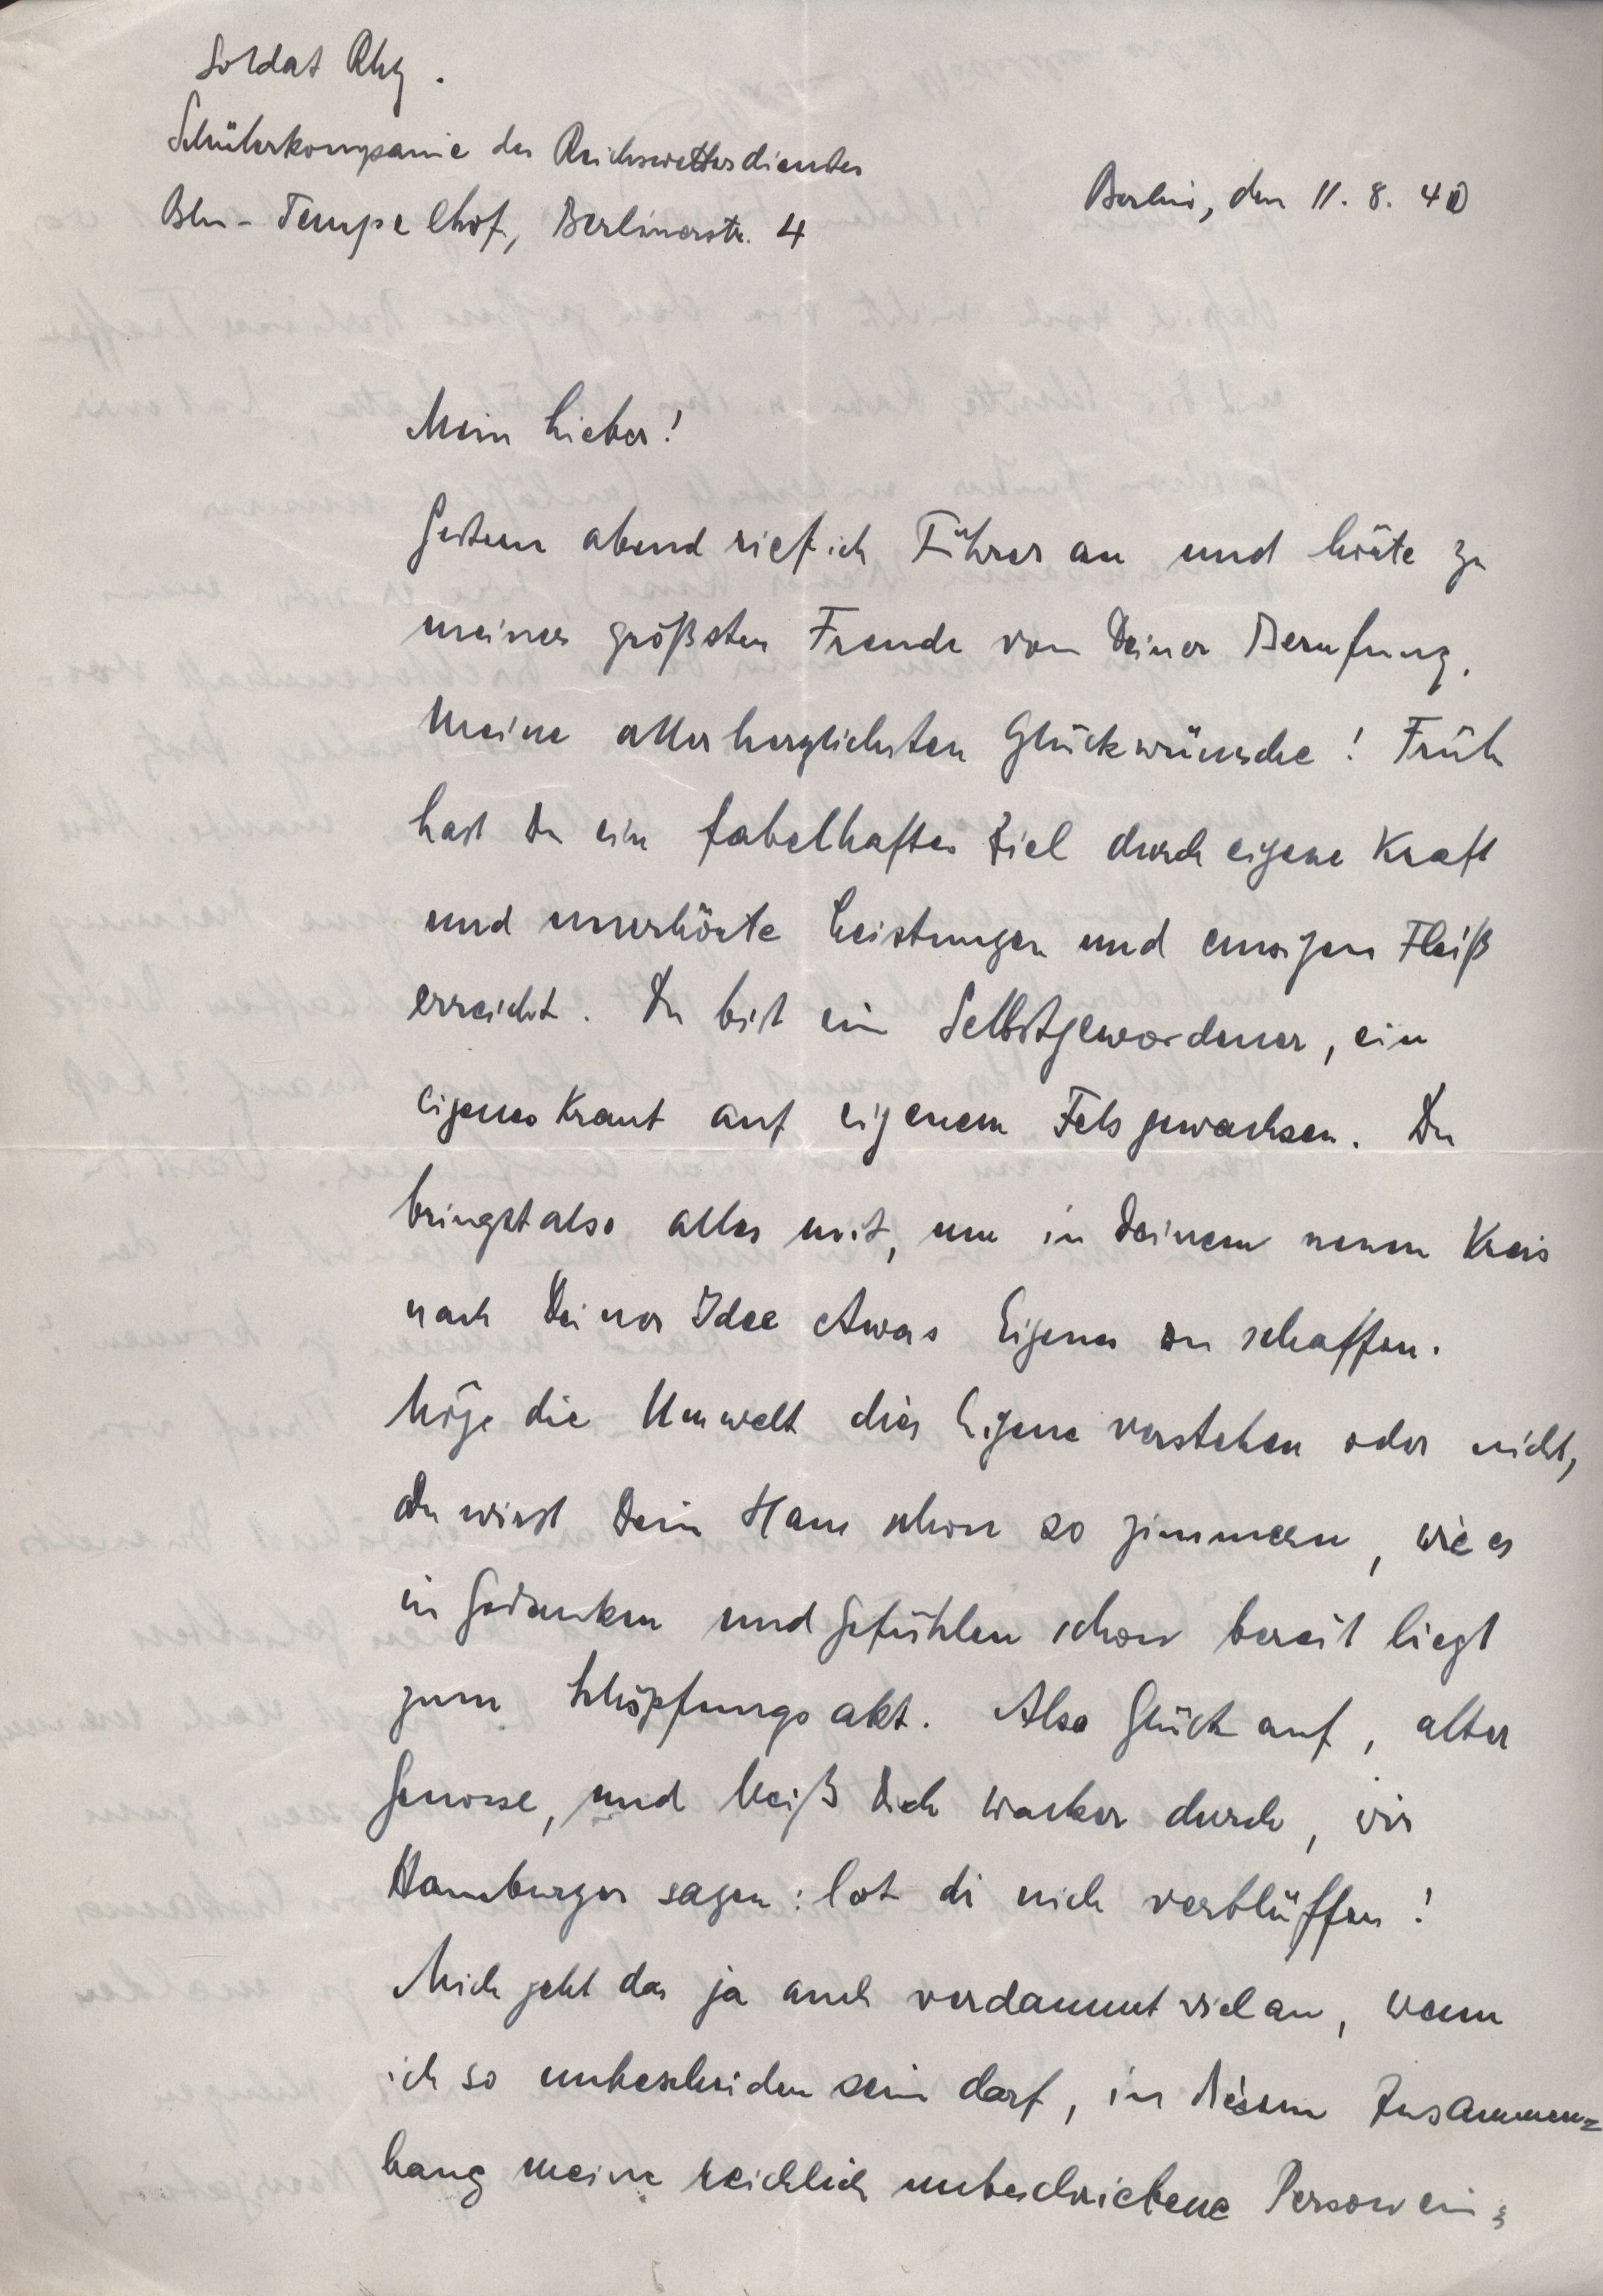 Soldat Rhg.
Schülerkompanie des Reichswetterdienstes
Bln-Tempelhof, Berlinerstr. 4
Berlin, den 11. 8. 40
Mein Lieber!
Gestern abend rief ich Führer an und hörte zu
meiner größten Freude von Deiner Berufung.
Meine allerherzlichsten Glückwünsche! Früh
hast Du ein fabelhaftes Ziel durch eigene Kraft
und unerhörte Leistungen und emsigen Fleiß
erreicht. Du bist ein Selbstgewordener, ein
eigenes Kraut auf eigenem Fels gewachsen. Du
bringst also alles mit, um in Deinem neuen Kreis
nach Deiner Idee etwas Eigenes zu schaffen.
Möge die Umwelt dies Eigene verstehen oder nicht,
Du wirst Dein Haus schon so zimmern, wie es
in Gedanken und Gefühlen schon bereit liegt
zum Schöpfungsakt. Also Glück auf, alter
Genosse, und beiß Dich wacker durch, wir
Hamburger sagen: lot di nich verblüffen!
Mich geht das ja auch verdammt viel an, wenn
ich so unbescheiden sein darf, in diesem Zusammen=
hang meine reichlich unbeschriebene Person ein=